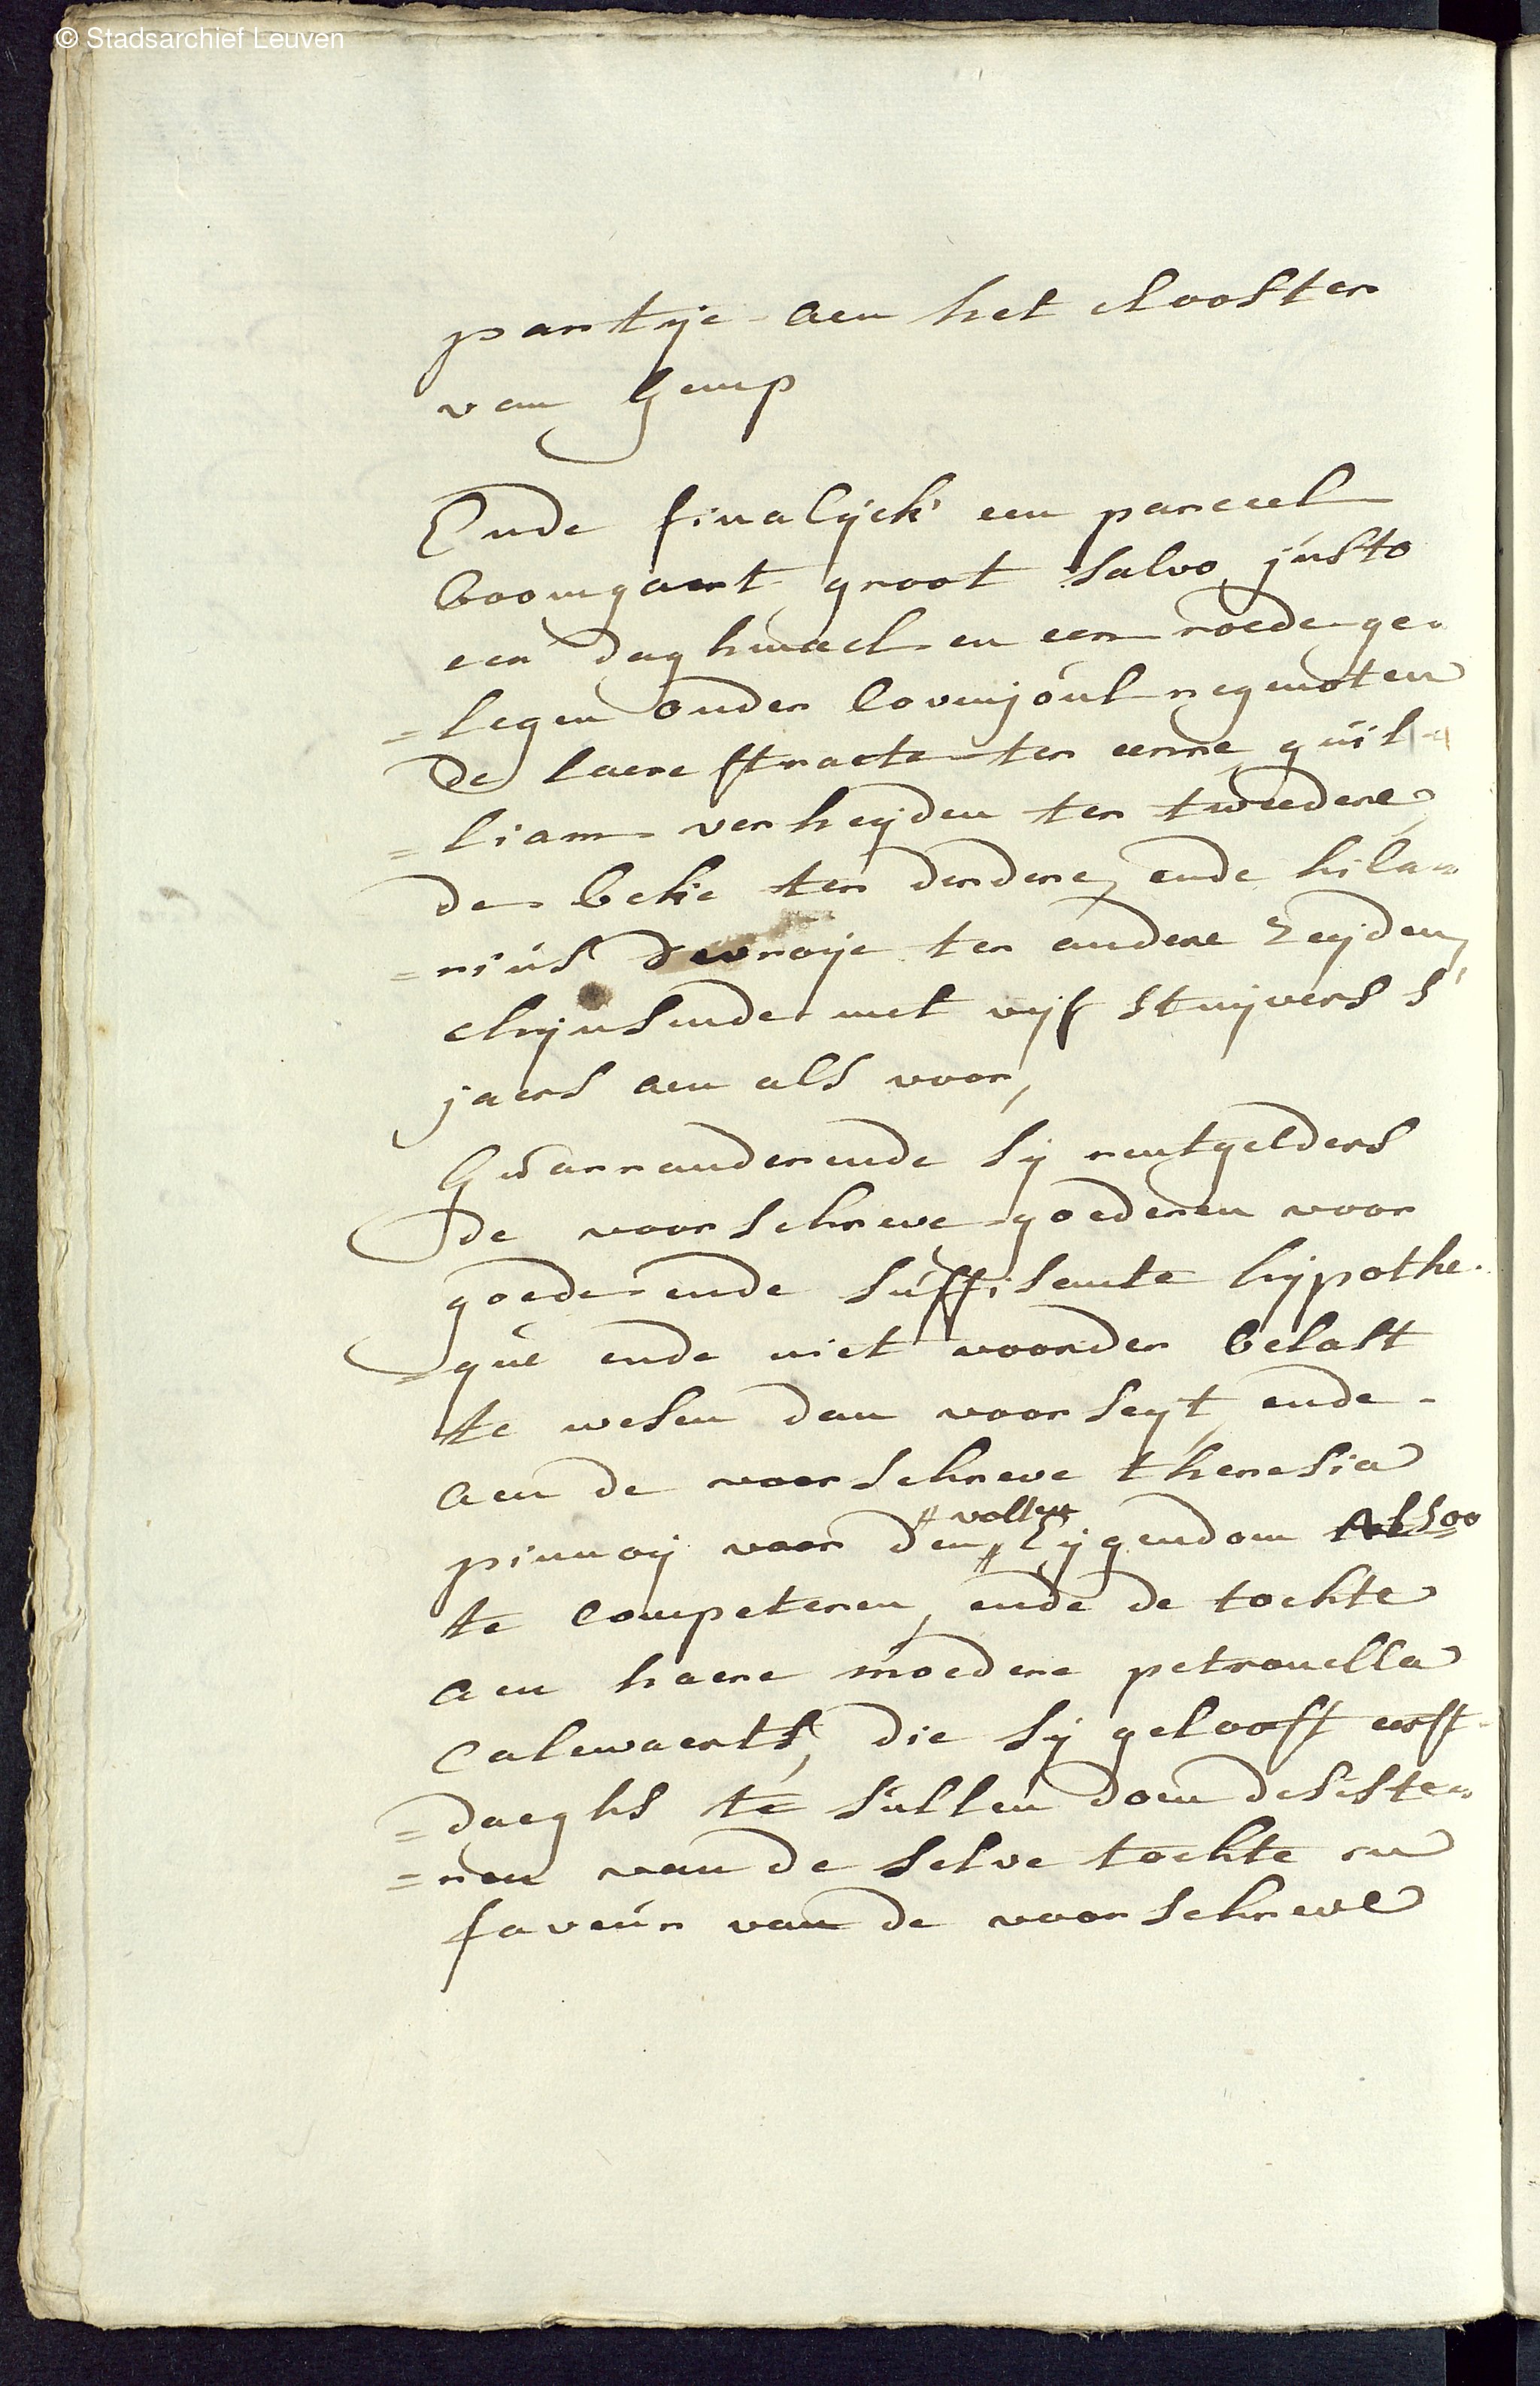 © Stadsarchief Leuven
partije aen het clooster
van Gemp
Ende finalijck een parceel
boomgaert groot salvo justo
een daghmael en een roede ge=
=legen onder lovenjoul regenoten
de laere straete ter eenre guil=
=liam verheijden ter tweedere
de beke ter derdere, ende hila=
=rius devroije ter andere zeijden,
chijnsende met vijf stuijvers s'
jaers aen als voor,
Gwarranderende sij rentgelders
de voorschreve goederen voor
goede ende suffisente hijpothe=
=que ende niet voorder belast
te wesen dan voorseyt, ende
aen de voorschreve theresia
pinnoij voor den // vollen // Eijgendom alsoo
te competeren, ende de tochte
aen haere moedere petronella
Calewaerts, die sij gelooft eerst=
=daeghs te sullen doen desiste=
=ren van de selve tochte in
faveur van de voorschreve